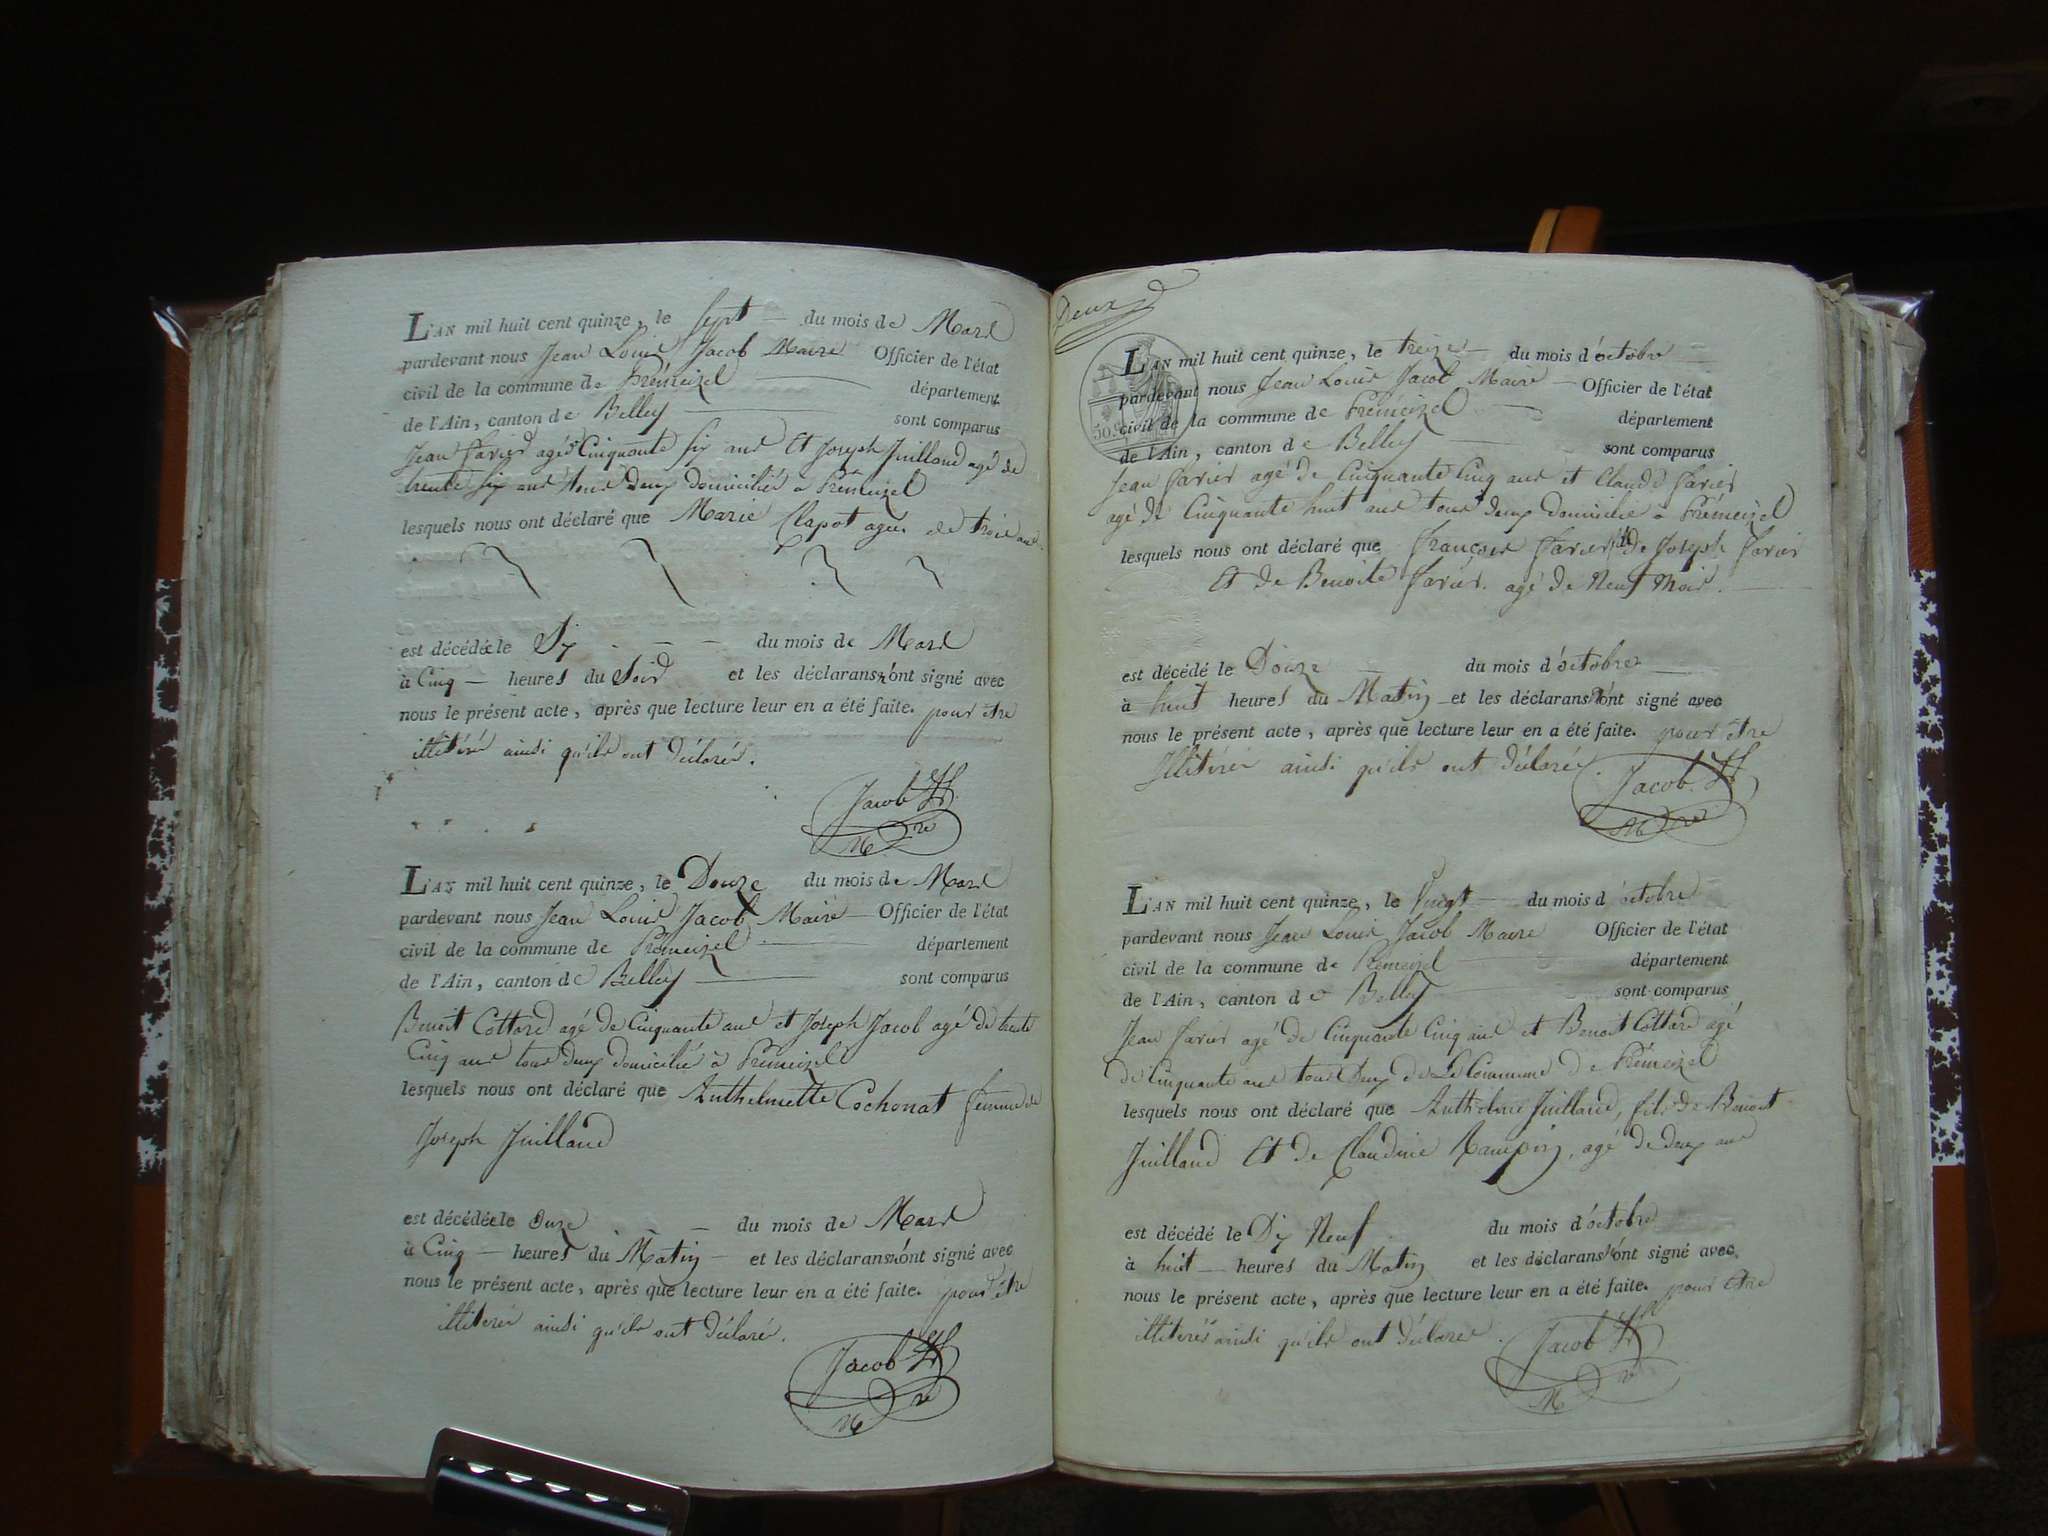 L'AN mil huit cent quinze, le Sept du mois de Mars
pardevant nous Jean Louis Jacob Maire Officier de l'état
civil de la commune de Prémeizel département
de l'Ain, canton de Belley sont comparus
Jean Favier agés Cinquante six ans Et Joseph Juilland agé de
trente six ans tous deux domiciliés à Prémeizel
lesquels nous ont déclaré que Marie Clapot agée de trois ans
est décédée le Six du mois de Mars
à Cinq heures du Soir et les déclarans n'ont signé avec
nous le présent acte, après que lecture leur en a été faite. pour être
illitérés ainsi qu'ils ont déclarés.
Jacob
Mre
L'AN mil huit cent quinze, le Douze du mois de Mars
pardevant nous Jean Louis Jacob Maire Officier de l'état
civil de la commune de Prémeizel département
de l'Ain, canton de Belley sont comparus
Benoit Cottard agé de Cinquante ans et Joseph Jacob agé de trente
Cinq ans tous deux domicilié à Prémeizel
lesquels nous ont déclaré que Anthelmette Cochonat femme de
Joseph Juilland
est décédée le onze du mois de Mars
à Cinq heures du Matin et les déclarans n'ont signé avec
nous le présent acte, après que lecture leur en a été faite. pour être
illiterés ainsi qu'ils ont déclaré.
Jacob
Mre
Deux
50 c
L'AN mil huit cent quinze, le treize du mois d'octobre
pardevant nous Jean Louis Jacob Maire Officier de l'état
civil de la commune de Prémeizel département
de l'Ain, canton de Belley sont comparus
Jean Favier agé de Cinquante Cinq ans et Claude Favier
agé de Cinquante huit ans tous deux domicilié à Prémeizel
lesquels nous ont déclaré que François Favier de Joseph Favier
Et de Benoite Favier. agé de Neuf Mois.
est décédé le Douze du mois d'octobre
à huit heures du Matin et les déclarans n'ont signé avec
nous le présent acte, après que lecture leur en a été faite. pour être
Illitérés ainsi qu'ils ont déclaré.
Jacob
Mre
L'AN mil huit cent quinze, le Vingt du mois d'octobre
pardevant nous Jean Louis Jacob Maire Officier de l'état
civil de la commune de Prémeizel département
de l'Ain, canton de Belley sont comparus
Jean Favier agé de Cinquante Cinq ans et Benoit Cottard agé
de Cinquante ans tous deux de La Commune de Prémeizel
lesquels nous ont déclaré que Anthelme Juilland, fils de Benoit
Juilland Et de Claudine Rampin, agé de deux ans
est décédé le Dix Neuf du mois d'octobre
à huit heures du Matin et les déclarans n'ont signé avec
nous le présent acte, après que lecture leur en a été faite. pour être
illiterés ainsi qu'ils ont déclarés.
Jacob
Mre